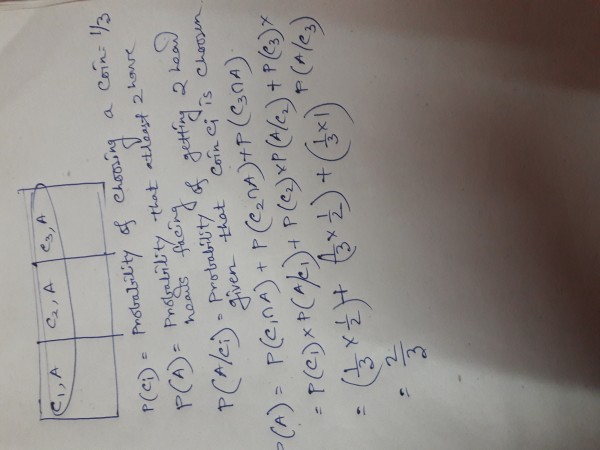 C1, A C2, A C3, A
P(Ci) = Probability of choosing a coin = 1/3
P(A) = Probability that atleast 2 have
heads facing
P(A/Ci) = Probability of getting 2 head
given that coin Ci is choosen.
P(A) = P(C1∩A) + P(C2∩A) + P(C3∩A)
= P(C1) × P(A/C1) + P(C2) × P(A/C2) + P(C3) ×
P(A/C3)
= (1/3 × 1/2) + (1/3 × 1/2) + (1/3 × 1)
= 2/3